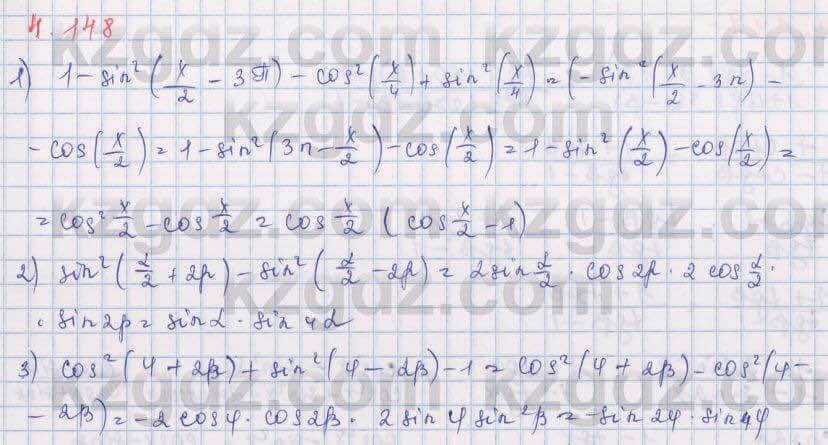 4.148
kzgdz.com kzgdz.com
1) 1 - sin² (x/2 - 3π) - cos² (x/4) + sin² (x/4) = (- sin² (x/2 - 3π) -
- cos (x/2) = 1 - sin² (3π - x/2) - cos (x/2) = 1 - sin² (x/2) - cos (x/2) =
= cos² x/2 - cos x/2 = cos x/2 (cos x/2 - 1)
2) sin² (α/2 + 2β) - sin² (α/2 - 2β) = 2 sin α/2 · cos 2β · 2 cos α/2 ·
· sin 2β = sin α · sin 4α
3) cos² (φ + 2β) + sin² (φ - 2β) - 1 = cos² (φ + 2β) - cos² (φ -
- 2β) = - 2 cos φ · cos 2β · 2 sin φ sin 2β = - sin 2φ · sin 4φ